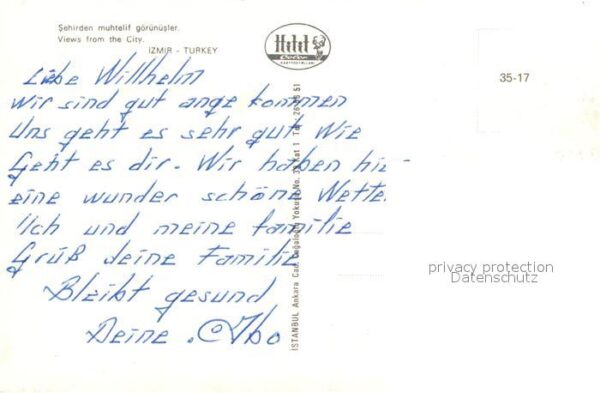 Şehirden muhtelif görünüşler.
Views from the City.
İZMİR - TURKEY
Hitit
Color
35-17
Liebe Willhelm
Wir sind gut ange kommen
Uns geht es sehr gut Wie
Geht es dir. Wir haben hie
eine wunder schöne Wette
Ich und meine familie
Grüß deine Familie
Bleibt gesund
Deine . Ibo
İSTANBUL Ankara Cad. Cağaloğlu Yokuşu No. Kat 1 Tel. 26 51
privacy protection
Datenschutz